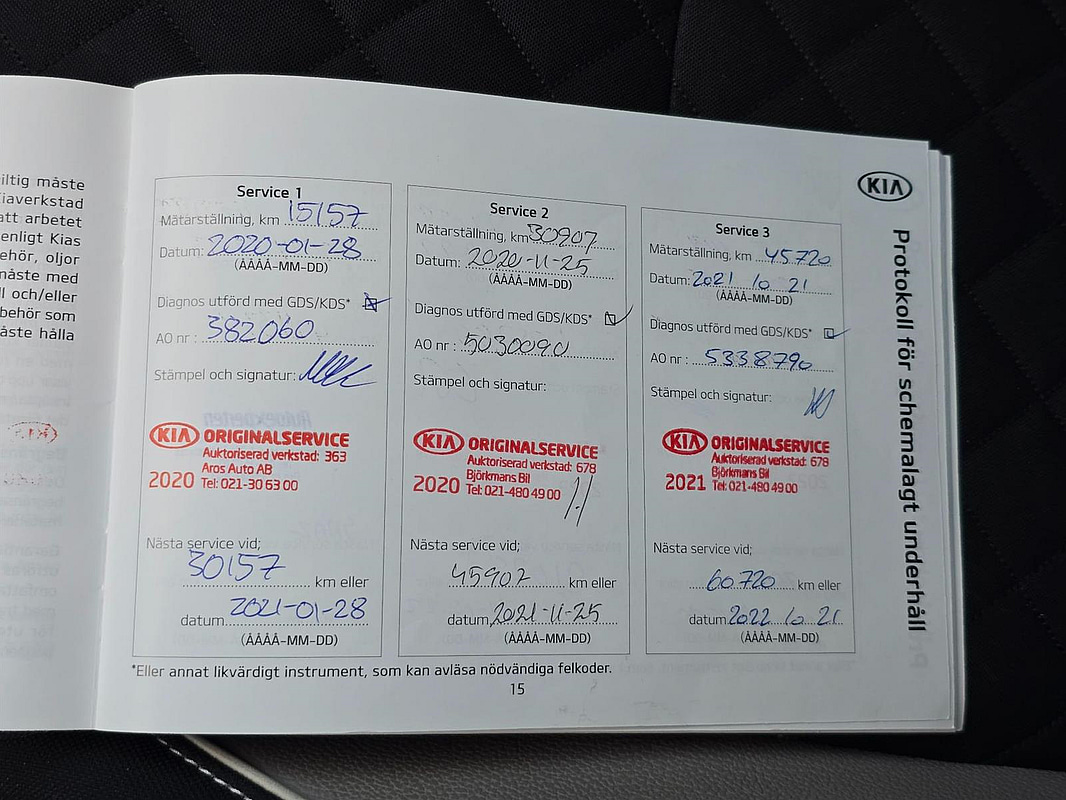 iltig måste
iaverkstad
att arbetet
enligt Kias
ehör, oljor
måste med
ll och/eller
behör som
åste hålla
KIA
Protokoll för schemalagt underhåll
Service 1
Mätarställning, km 15157
Datum: 2020-01-28
(ÅÅÅÅ-MM-DD)
Diagnos utförd med GDS/KDS*
AO nr : 382060
Stämpel och signatur:
KIA ORIGINALSERVICE
Auktoriserad verkstad: 363
Aros Auto AB
2020 Tel: 021-30 63 00
Nästa service vid;
30157 km eller
datum 2021-01-28
(ÅÅÅÅ-MM-DD)
Service 2
Mätarställning, km 30907
Datum: 2020-11-25
(ÅÅÅÅ-MM-DD)
Diagnos utförd med GDS/KDS*
AO nr : 5030090
Stämpel och signatur:
KIA ORIGINALSERVICE
Auktoriserad verkstad: 678
Björkmans Bil
2020 Tel: 021-480 49 00
Nästa service vid;
45907 km eller
datum 2021-11-25
(ÅÅÅÅ-MM-DD)
Service 3
Mätarställning, km 45720
Datum: 2021 10 21
(ÅÅÅÅ-MM-DD)
Diagnos utförd med GDS/KDS*
AO nr : 5338790
Stämpel och signatur:
KIA ORIGINALSERVICE
Auktoriserad verkstad: 678
Björkmans Bil
2021 Tel: 021-480 49 00
Nästa service vid;
60720 km eller
datum 2022 10 21
(ÅÅÅÅ-MM-DD)
*Eller annat likvärdigt instrument, som kan avläsa nödvändiga felkoder.
15